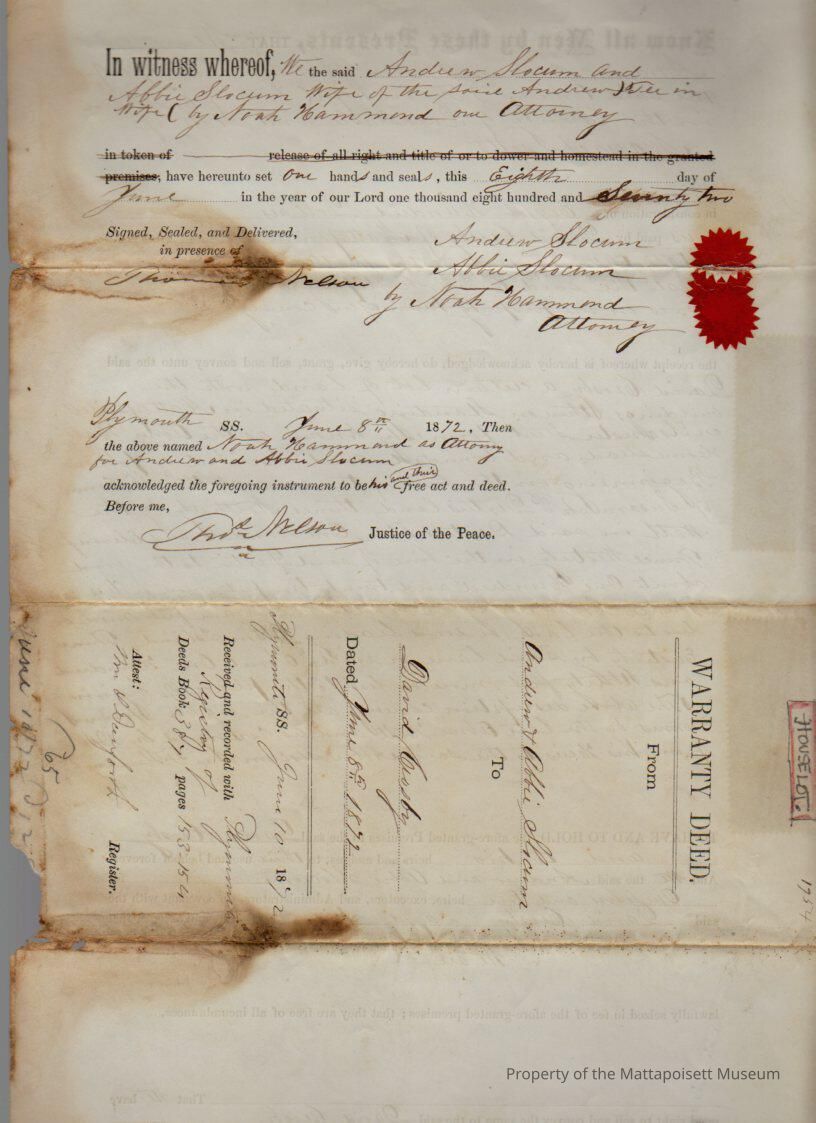 In witness whereof, We the said Andrew Slocum and
Abbie Slocum Wife of the said Andrew
Wife by Noah Hammond our Attorney
in token of release of all right and title of or to dower and homestead in the granted
premises, have hereunto set our hands and seals, this Eighth day of
June in the year of our Lord one thousand eight hundred and Seventy two
Signed, Sealed, and Delivered,
in presence of
Thomas Nelson
Andrew Slocum
Abbie Slocum
by Noah Hammond
Attorney
Plymouth SS. June 8th 1872, Then
the above named Noah Hammond as Attorny
for Andrew and Abbie Slocum
acknowledged the foregoing instrument to be his and their free act and deed.
Before me,
Thos Nelson Justice of the Peace.
WARRANTY DEED.
From
Andrew & Abbie Slocum
To
David
Dated June 8th 1872
Plymouth SS. June 10 1872
Received and recorded with Plymouth
Registry of
Deeds Book 387 pages 153 154
Attest:
Wm S Danforth Register.
June 1872
HOUSE LOT.
1754
Property of the Mattapoisett Museum